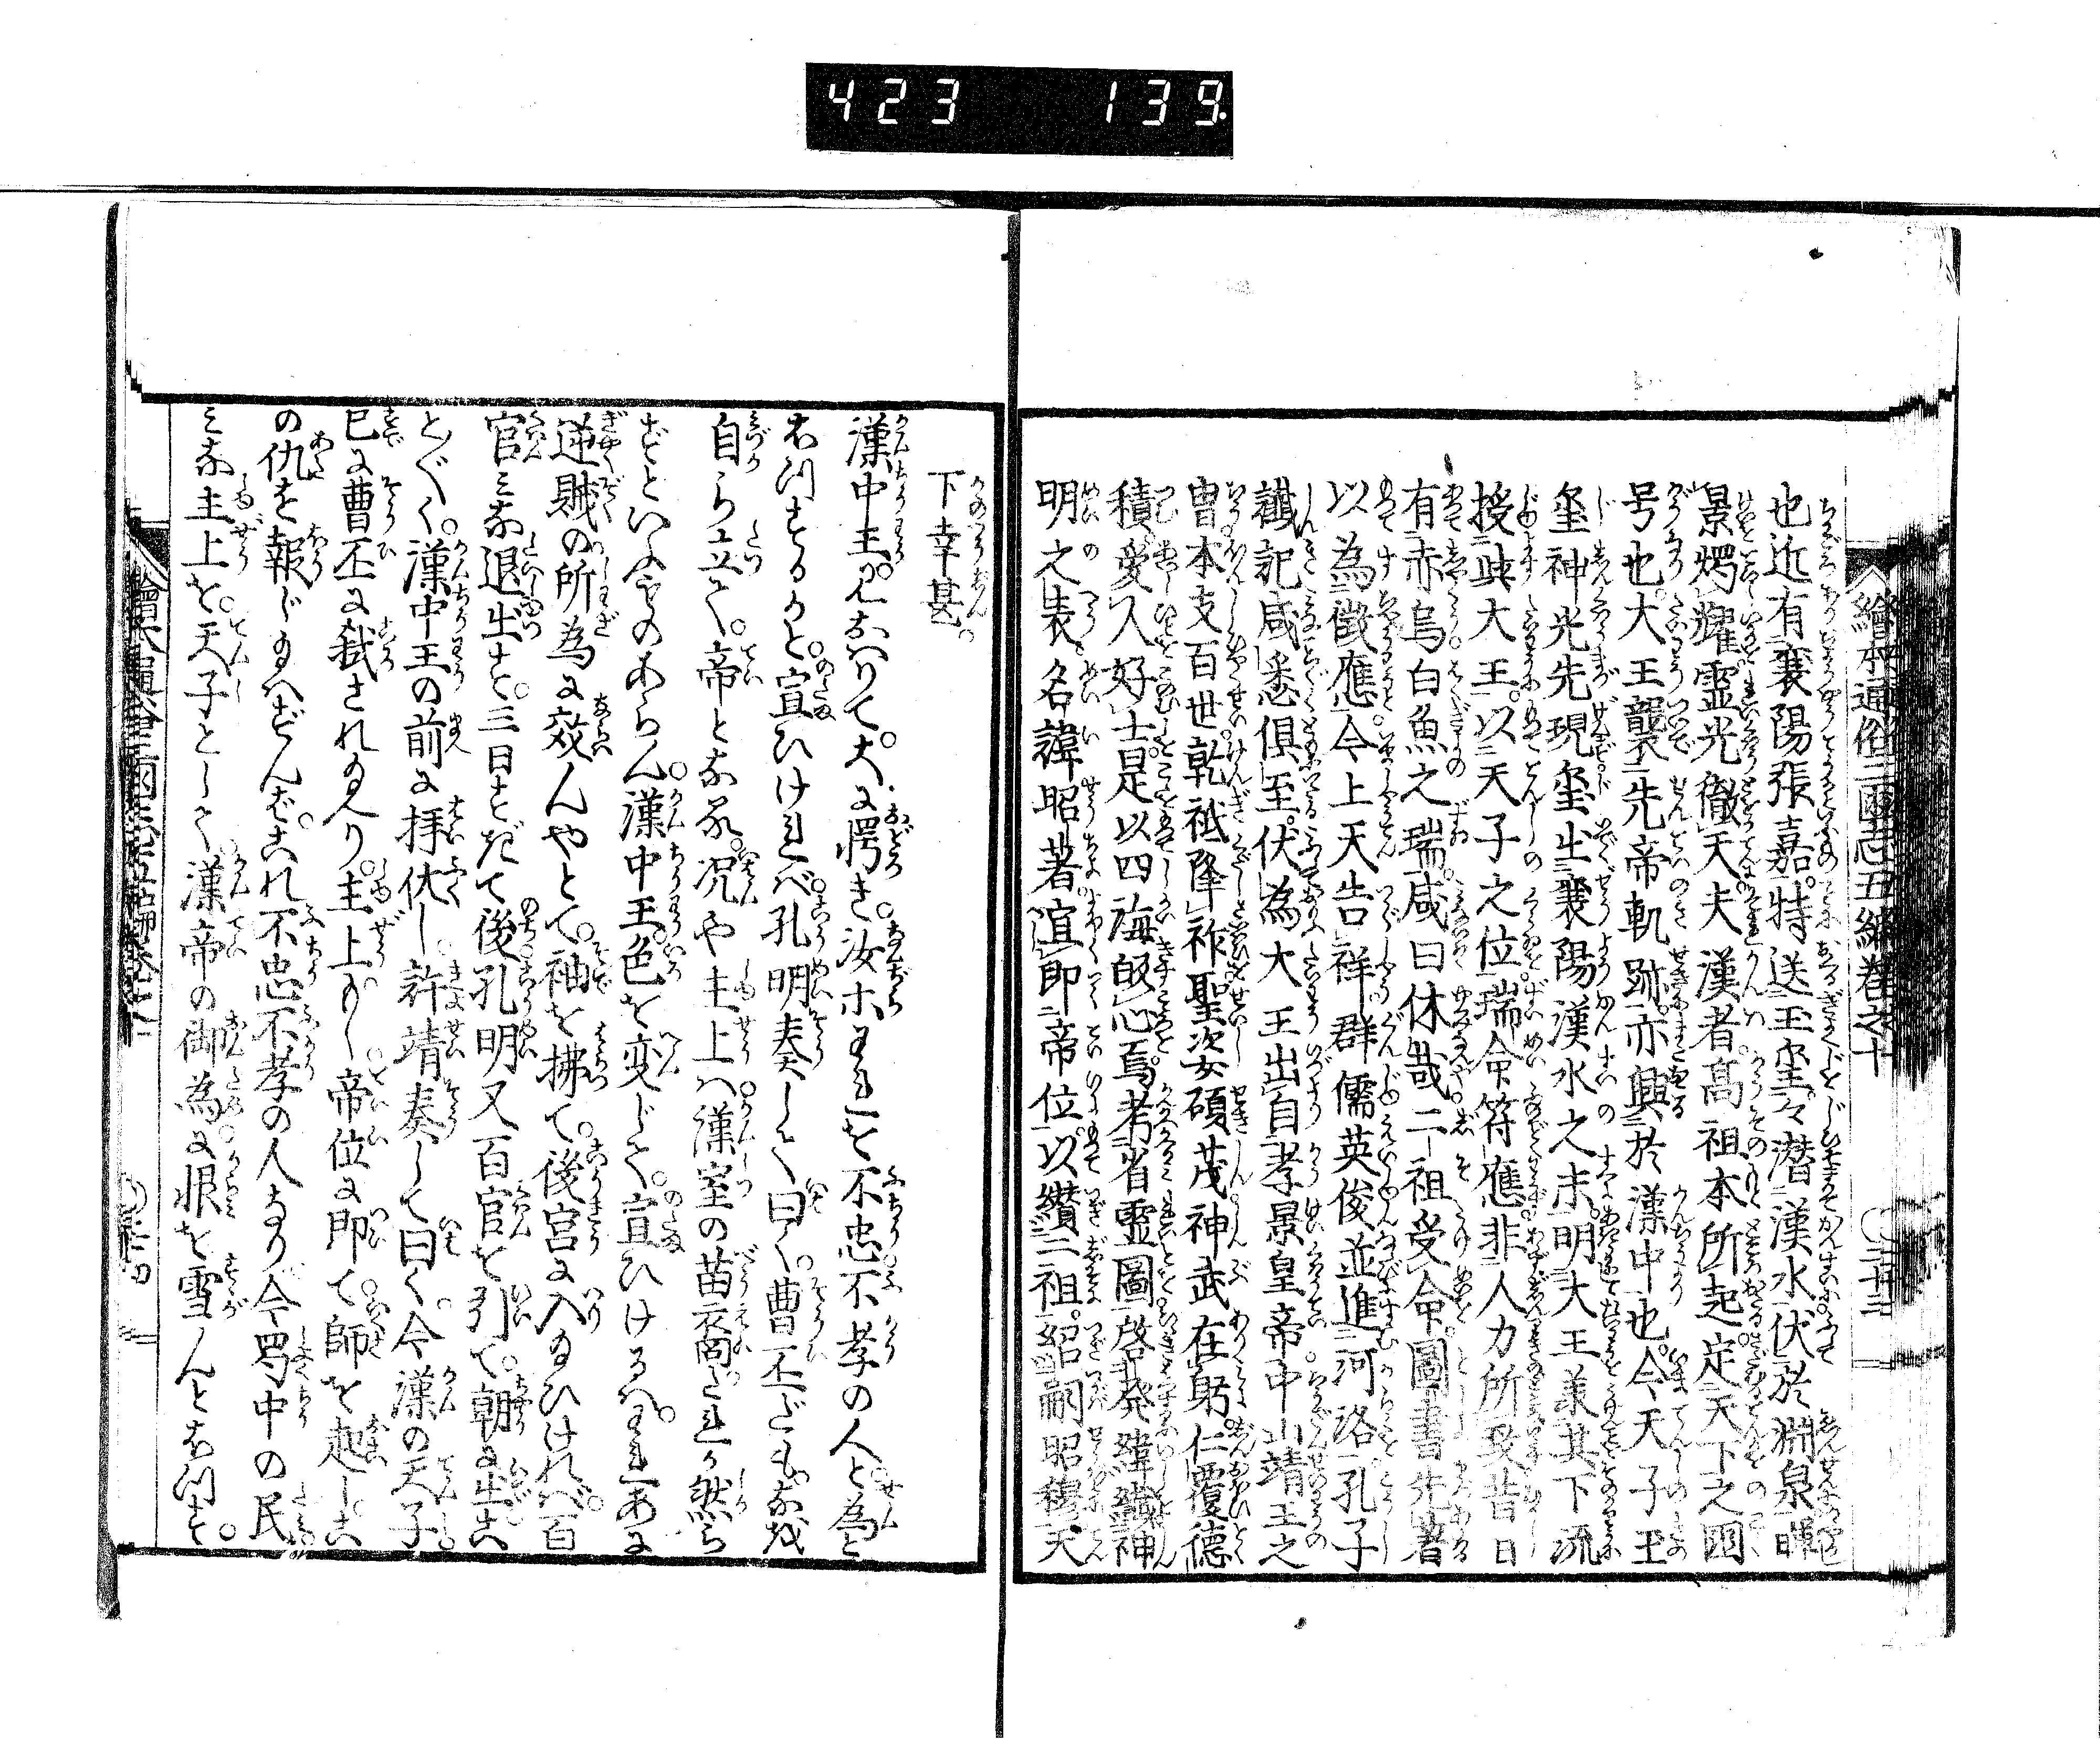 423 139
繪本通俗三國志五編卷之十
〇二十三
也近有襄陽張嘉特送玉璽々潜漢水伏於淵泉暉
景燭耀霊光徹天夫漢者高祖本所起定天下之国
号也大王襲先帝軌跡亦興於漢中也今天子玉
璽神光先現璽出襄陽漢水之末明大王兼其下流
授與大王以天子之位瑞命符應非人力所致昔日
有赤烏白魚之瑞咸曰休哉二祖受命圖書先著
以為徴應今上天告祥群儒英俊並進河洛孔子
讖記咸悉俱至伏為大王出自孝景皇帝中山靖王之
曽本支百世乾祇降祚聖姿碩茂神武在躬仁覆徳
積愛人好士是以四海皈心焉考省霊圖啓発緯䜟神
明之表名諱昭著宜即帝位以纉二祖紹嗣昭穆天
下幸甚。
漢中王見おハりて。大に愕き。汝ホわれを不忠不孝の人と為と
おぼするかと。宣ひけれバ。孔明奏して曰く。曹丕だもなを
自ら立て。帝となる。况や主上ハ漢室の苗裔これが然ら
ずといふものあらん。漢中王色を変じて。宣ひけるハ。われあに
逆賊の所為に效んやとて。袖を拂て。後宮に入給ひけれバ。百
官ミな退出す。三日をだて後孔明又百官を引て。朝に出こ
と〴〵く。漢中王の前に拝伏し。許靖奏して曰く。今漢の天子
已に曹丕に弑され給へり。主上もし帝位に即て。師を起しこ
の仇を報じ給ハずんバ。これ不忠不孝の人なり。今蜀中の民
ミな主上を。天子として。漢帝の御為に恨を雪んとおぼす。